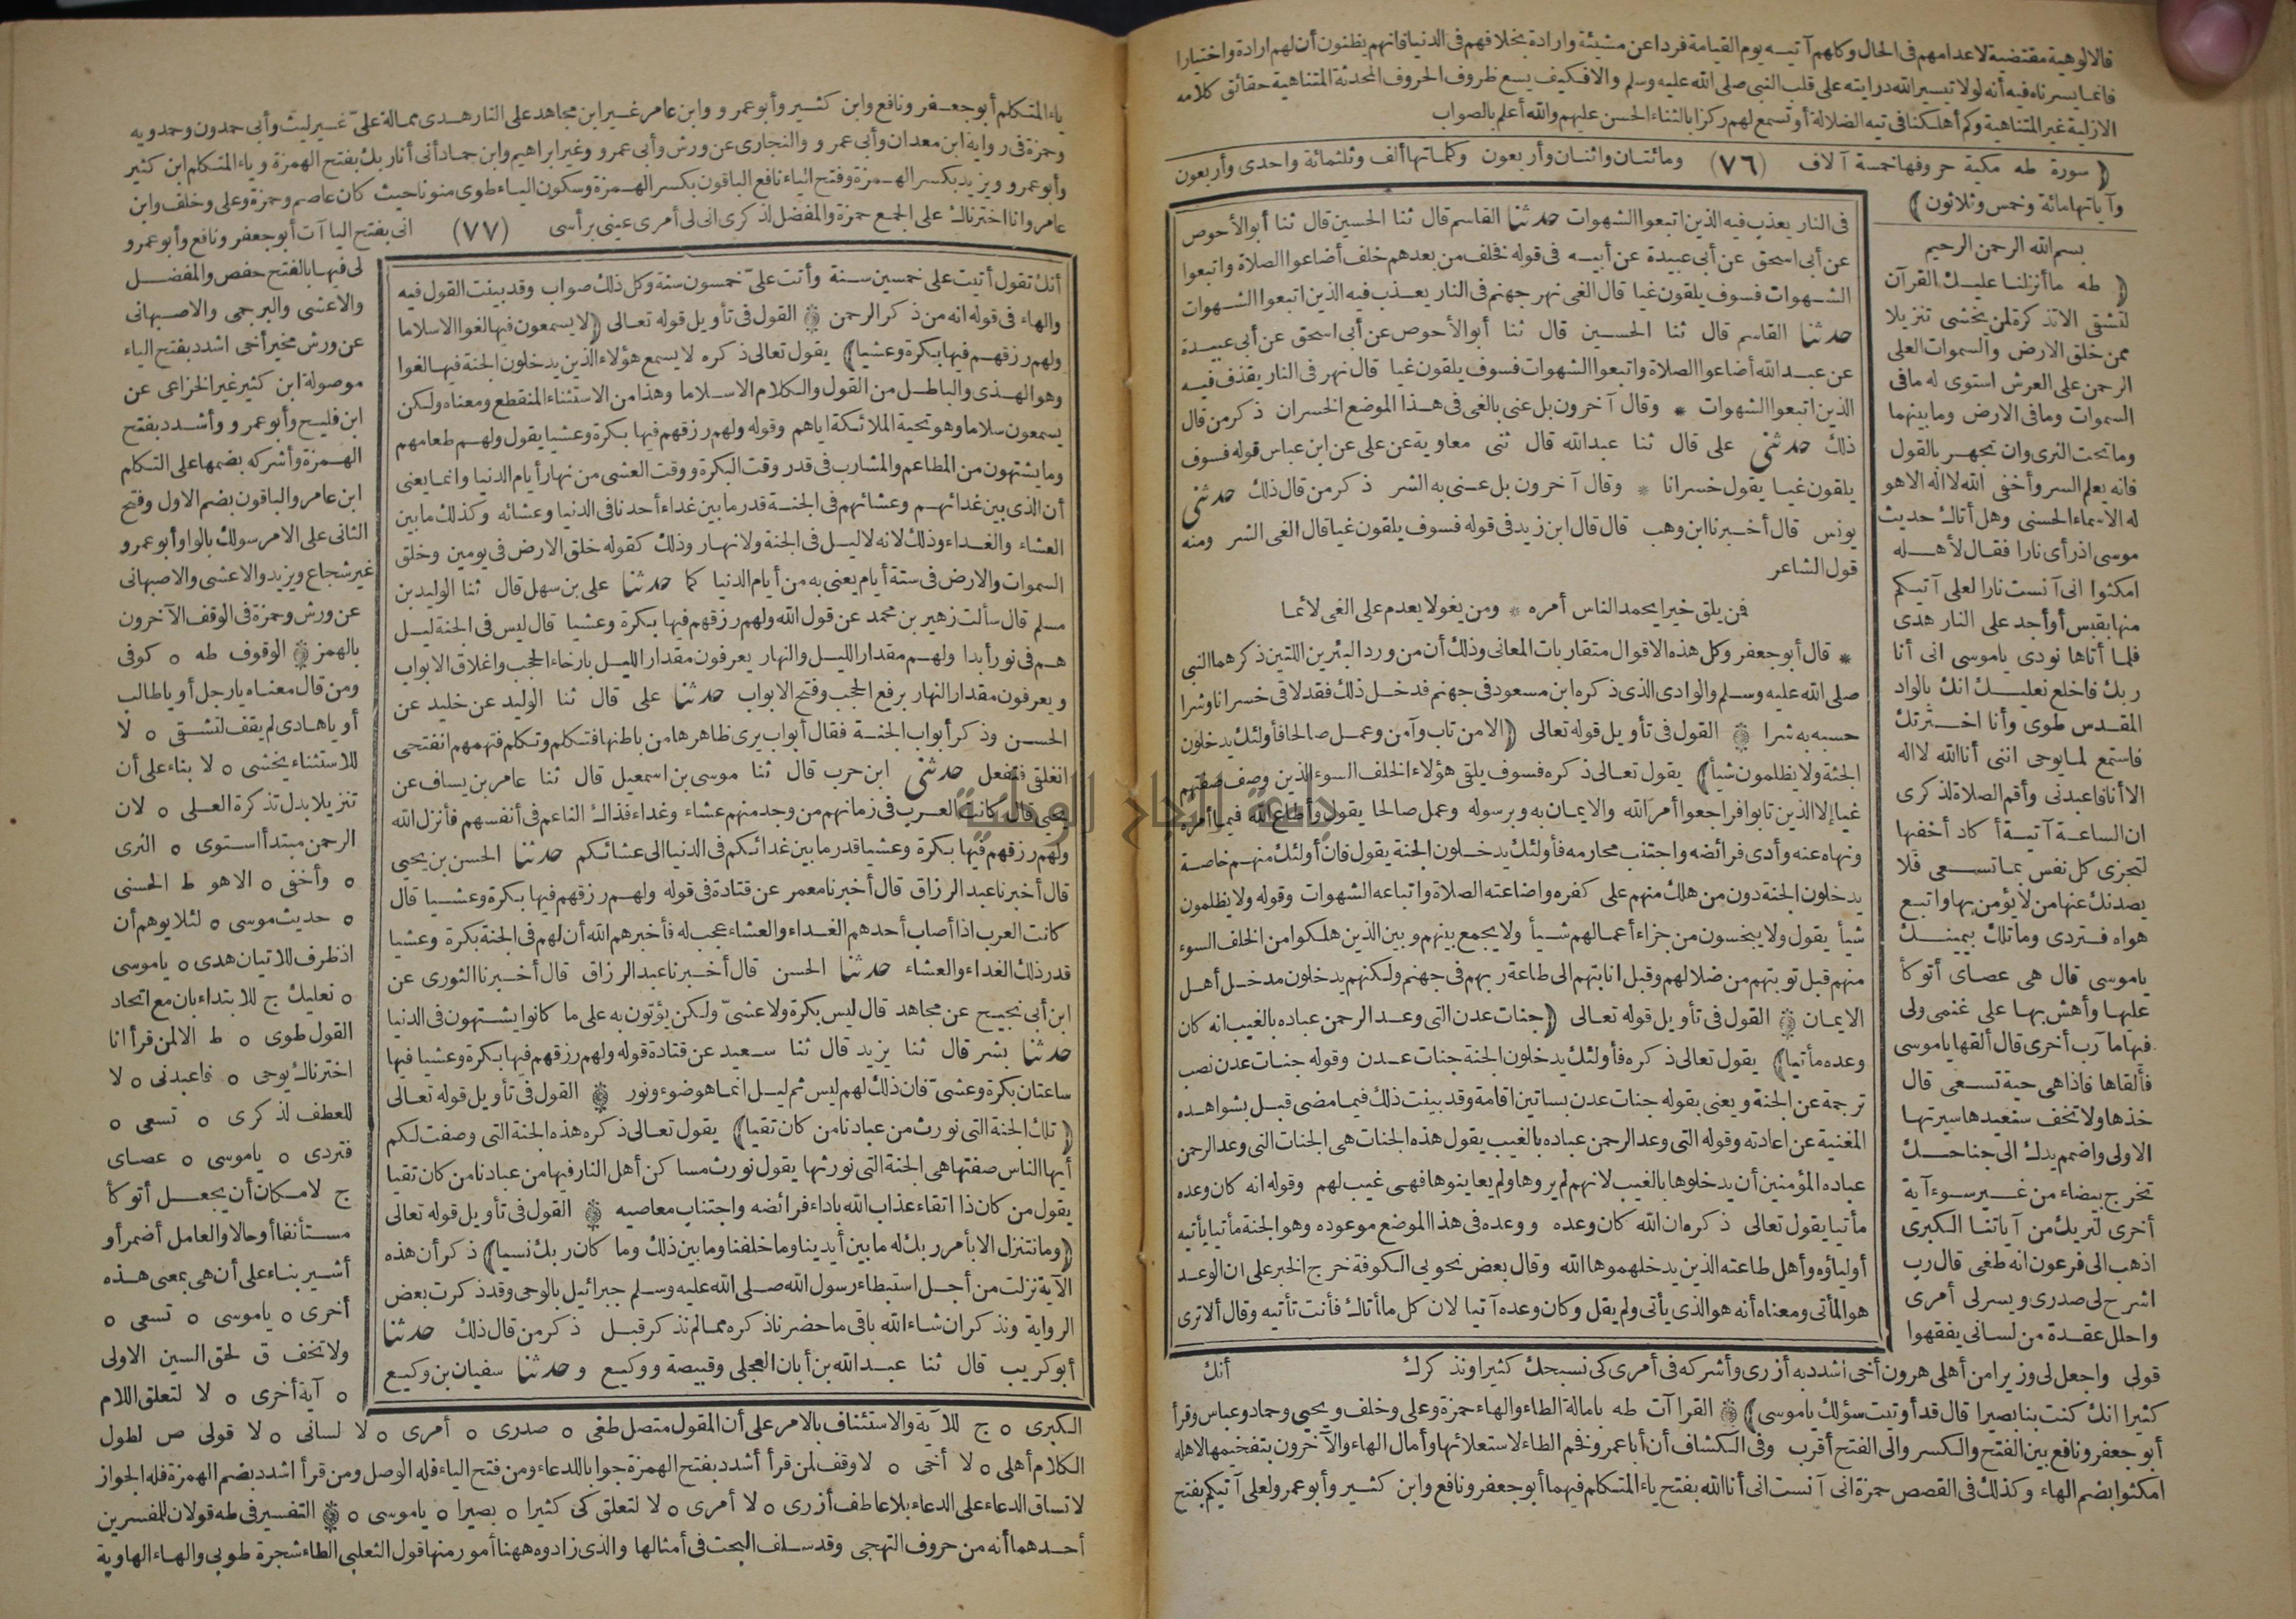 فالالوهية مقتضية لاعدامهم فى الحال وكلهم آتيه يوم القيامة فردا عن مشيئة وارادة بخلافهم فى الدنيا فانهم يظنون أن لهم ارادة واختيارا
فانما يسرناه فيه أنه لولا تيسير الله درايته على قلب النبى صلى الله عليه وسلم والا فكيف يسع ظروف الحروف المحدثة المتناهية حقائق كلامه
الازلية غير المتناهية وكم أهلكنا فى تيه الضلالة أو تسمع لهم ركزا بالثناء الحسن عليهم والله أعلم بالصواب
(سورة طه مكية حروفها خمسة آلاف (٧٦) ومائتان واثنان وأربعون وكلماتها ألف وثلثمائة واحدى وأربعون
وآياتها مائة وخمس وثلاثون)
بسم الله الرحمن الرحيم
(طه ما أنزلنا عليك القرآن
لتشقى الا تذكرة لمن يخشى تنزيلا
ممن خلق الارض والسموات العلى
الرحمن على العرش استوى له ما فى
السموات وما فى الارض وما بينهما
وما تحت الثرى وان تجهر بالقول
فانه يعلم السر وأخفى الله لا اله الا هو
له الاسماء الحسنى وهل أتاك حديث
موسى اذ رأى نارا فقال لأهله
امكثوا انى آنست نارا لعلى آتيكم
منها بقبس أو أجد على النار هدى
فلما أتاها نودى ياموسى انى أنا
ربك فاخلع نعليك انك بالواد
المقدس طوى وأنا اخترتك
فاستمع لما يوحى اننى أنا الله لا اله
الا أنا فاعبدنى وأقم الصلاة لذكرى
ان الساعة آتية أكاد أخفيها
لتجزى كل نفس بما تسعى فلا
يصدنك عنها من لا يؤمن بها واتبع
هواه فتردى وما تلك بيمينك
ياموسى قال هى عصاى أتوكأ
عليها وأهش بها على غنمى ولى
فيها مآرب أخرى قال ألقها ياموسى
فألقاها فاذا هى حية تسعى قال
خذها ولا تخف سنعيدها سيرتها
الاولى واضمم يدك الى جناحك
تخرج بيضاء من غير سوء آية
أخرى لنريك من آياتنا الكبرى
اذهب الى فرعون انه طغى قال رب
اشرح لى صدرى ويسر لى أمرى
واحلل عقدة من لسانى يفقهوا
فى النار يعذب فيه الذين اتبعوا الشهوات حدثنا القاسم قال ثنا الحسين قال ثنا أبو الأحوص
عن أبى اسحق عن أبى عبيدة عن أبيه فى قوله فخلف من بعدهم خلف أضاعوا الصلاة واتبعوا
الشهوات فسوف يلقون غيا قال الغى نهر جهنم فى النار يعذب فيه الذين اتبعوا الشهوات
حدثنا القاسم قال ثنا الحسين قال ثنا أبو الأحوص عن أبى اسحق عن أبى عبيدة
عن عبد الله أضاعوا الصلاة واتبعوا الشهوات فسوف يلقون غيا قال نهر فى النار يقذف فيه
الذين اتبعوا الشهوات * وقال آخرون بل عنى بالغى فى هذا الموضع الخسران ذكر من قال
ذلك حدثنى على قال ثنا عبدالله قال ثنى معاوية عن على عن ابن عباس قوله فسوف
يلقون غيا يقول خسرانا * وقال آخرون بل عنى به الشر ذكر من قال ذلك حدثنى
يونس قال أخبرنا ابن وهب قال قال ابن زيد فى قوله فسوف يلقون غيا قال الغى الشر ومنه
قول الشاعر
فمن يلق خيرا يحمد الناس أمره * ومن يغو لا يعدم على الغى لائما
* قال أبو جعفر وكل هذه الاقوال متقاربات المعانى وذلك أن من ورد البئرين اللتين ذكرهما النبى
صلى الله عليه وسلم والوادى الذى ذكره ابن مسعود فى جهنم فدخل ذلك فقد لاقى خسرانا وشرا
حسبه به شرا ۞ القول فى تأويل قوله تعالى (الا من تاب وآمن وعمل صالحا فأولئك يدخلون
الجنة ولا يظلمون شيأ) يقول تعالى ذكره فسوف يلقى هؤلاء الخلف السوء الذين وصف صفتهم
غيا إلا الذين تابوا فراجعوا أمر الله والايمان به وبرسوله وعمل صالحا يقول وأطاع الله فيما أمره
ونهاه عنه وأدى فرائضه واجتنب محارمه فأولئك يدخلون الجنة يقول فان أولئك منهم خاصة
يدخلون الجنة دون من هلك منهم على كفره واضاعته الصلاة واتباعه الشهوات وقوله ولا يظلمون
شيأ يقول ولا يبخسون من جزاء أعمالهم شيأ ولا يجمع بينهم وبين الذين هلكوا من الخلف السوء
منهم قبل توبتهم من ضلالهم وقبل انابتهم الى طاعة ربهم فى جهنم ولكنهم يدخلون مدخل أهل
الايمان ۞ القول فى تأويل قوله تعالى (جنات عدن التى وعد الرحمن عباده بالغيب انه كان
وعده مأتيا) يقول تعالى ذكره فأولئك يدخلون الجنة جنات عدن وقوله جنات عدن نصب
ترجمة عن الجنة ويعنى بقوله جنات عدن بساتين اقامة وقد بينت ذلك فيما مضى قبل بشواهده
المغنية عن اعادته وقوله التى وعد الرحمن عباده بالغيب يقول هذه الجنات هى الجنات التى وعد الرحمن
عباده المؤمنين أن يدخلوها بالغيب لانهم لم يروها ولم يعاينوها فهى غيب لهم وقوله انه كان وعده
مأتيا يقول تعالى ذكره ان الله كان وعده ووعده فى هذا الموضع موعوده وهو الجنة مأتيا يأتيه
أولياؤه وأهل طاعته الذين يدخلهموها الله وقال بعض نحويى الكوفة خرج الخبر على ان الوعد
هو المأتى ومعناه أنه هو الذى يأتى ولم يقل وكان وعده آتيا لان كل ما أتاك فأنت تأتيه وقال ألا ترى
قولى واجعل لى وزيرا من أهلى هرون أخى اشدد به أزرى وأشركه فى أمرى كى نسبحك كثيرا ونذكرك أنك
كثيرا انك كنت بنا بصيرا قال قد أوتيت سؤلك ياموسى) ۞ القراآت طه بامالة الطاء والهاء حمزة وعلى وخلف ويحيى وحماد وعباس وقرأ
أبو جعفر ونافع بين الفتح والكسر والى الفتح أقرب وفى الكشاف أن أبا عمرو فخم الطاء لاستعلائها وأمال الهاء والآخرون بتفخيمهما لاهله
امكثوا بضم الهاء وكذلك فى القصص حمزة انى آنست انى أنا الله بفتح ياء المتكلم فيهما أبو جعفر ونافع وابن كثير وأبو عمرو لعلى آتيكم بفتح
ياء المتكلم أبو جعفر ونافع وابن كثير وأبو عمرو وابن عامر غير ابن مجاهد على النار هدى ممالة علىّ غير ليث وأبى حمدون وحمدويه
وحمزة فى رواية ابن سعدان وأبى عمرو والنجارى عن ورش وأبى عمرو وغير ابراهيم وابن حماد أنى أنا ربك بفتح الهمزة وياء المتكلم ابن كثير
وأبو عمرو ويزيد بكسر الهمزة وفتح الياء نافع الباقون بكسر الهمزة وسكون الياء طوى منونا حيث كان عاصم وحمزة وعلى وخلف وابن
عامر وانا اخترناك على الجمع حمزة والمفضل لذكرى انى لى أمرى عينى برأسى (٧٧) انى بفتح الياآت أبو جعفر ونافع وأبو عمرو
لى فيها بالفتح حفص والمفضل
والاعشى والبرجمى والاصبهانى
عن ورش مخير أخى اشدد بفتح الياء
موصولة ابن كثير غير الخزاعى عن
ابن فليح وأبو عمرو وأشدد بفتح
الهمزة وأشركه بضمها على التكلم
ابن عامر والباقون بضم الاول وفتح
الثانى على الامر سولك بالواو أبو عمرو
غير شجاع ويزيد والاعشى والاصبهانى
عن ورش وحمزة فى الوقف الآخرون
بالهمز ۞ الوقوف طه ه كوفى
ومن قال معناه يارجل أو ياطالب
أو ياهادى لم يقف لتشقى ه لا
للاستثناء يخشى ه لا بناء على أن
تنزيلا بدل تذكرة العلى ه لان
الرحمن مبتدأ استوى ه الثرى
ه وأخفى ه الا هو ط الحسنى
ه حديث موسى ه لئلا يوهم أن
اذ ظرف للاتيان هدى ه ياموسى
ه نعليك ج للابتداء بان مع اتحاد
القول طوى ه ط الا لمن قرأ انا
اخترناك يوحى ه فاعبدنى ه لا
للعطف لذكرى ه تسعى ه
فتردى ه ياموسى ه عصاى
ج لامكان أن يجعل أتوكأ
مستأنفا أو حالا والعامل أضمر أو
أشير بناء على أن هى بمعنى هذه
أخرى ه ياموسى ه تسعى ه
ولا تخف ق لحق السين الاولى
ه آية أخرى ه لا لتعلق اللام
أنك تقول أتيت على خمسين سنة وأتت علىّ خمسون سنة وكل ذلك صواب وقد بينت القول فيه
والهاء فى قوله انه من ذكر الرحمن ۞ القول فى تأويل قوله تعالى (لا يسمعون فيها لغوا الا سلاما
ولهم رزقهم فيها بكرة وعشيا) يقول تعالى ذكره لا يسمع هؤلاء الذين يدخلون الجنة فيها لغوا
وهو الهذى والباطل من القول والكلام الا سلاما وهذا من الاستثناء المنقطع ومعناه ولكن
يسمعون سلاما وهو تحية الملائكة اياهم وقوله ولهم رزقهم فيها بكرة وعشيا يقول ولهم طعامهم
وما يشتهون من المطاعم والمشارب فى قدر وقت البكرة ووقت العشى من نهار أيام الدنيا وانما يعنى
أن الذى بين غدائهم وعشائهم فى الجنة قدر ما بين غداء أحدنا فى الدنيا وعشائه وكذلك ما بين
العشاء والغداء وذلك لانه لا ليل فى الجنة ولا نهار وذلك كقوله خلق الارض فى يومين وخلق
السموات والارض فى ستة أيام يعنى به من أيام الدنيا كما حدثنا على بن سهل قال ثنا الوليد بن
مسلم قال سألت زهير بن محمد عن قول الله ولهم رزقهم فيها بكرة وعشيا قال ليس فى الجنة ليل
هم فى نور أبدا ولهم مقدار الليل والنهار يعرفون مقدار الليل بارخاء الحجب واغلاق الابواب
ويعرفون مقدار النهار برفع الحجب وفتح الابواب حدثنا على قال ثنا الوليد عن خليد عن
الحسن وذكر أبواب الجنة فقال أبواب يرى ظاهرها من باطنها فتكلم وتكلم فتهمهم انفتحى
انغلقى فتفعل حدثنى ابن حرب قال ثنا موسى بن اسمعيل قال ثنا عامر بن يساف عن
يحيى قال كانت العرب فى زمانهم من وجد منهم عشاء وغداء فذاك الناعم فى أنفسهم فأنزل الله
ولهم رزقهم فيها بكرة وعشيا قدر ما بين غدائكم فى الدنيا الى عشائكم حدثنا الحسن بن يحيى
قال أخبرنا عبد الرزاق قال أخبرنا معمر عن قتادة فى قوله ولهم رزقهم فيها بكرة وعشيا قال
كانت العرب اذا أصاب أحدهم الغداء والعشاء عجب له فأخبرهم الله أن لهم فى الجنة بكرة وعشيا
قدر ذلك الغداء والعشاء حدثنا الحسن قال أخبرنا عبد الرزاق قال أخبرنا الثورى عن
ابن أبى نجيح عن مجاهد قال ليس بكرة ولا عشىّ ولكن يؤتون به على ما كانوا يشتهون فى الدنيا
حدثنا بشر قال ثنا يزيد قال ثنا سعيد عن قتادة قوله ولهم رزقهم فيها بكرة وعشيا فيها
ساعتان بكرة وعشىّ فان ذلك لهم ليس ثم ليل انما هو ضوء ونور ۞ القول فى تأويل قوله تعالى
(تلك الجنة التى نورث من عبادنا من كان تقيا) يقول تعالى ذكره هذه الجنة التى وصفت لكم
أيها الناس صفتها هى الجنة التى نورثها يقول نورث مساكن أهل النار فيها من عبادنا من كان تقيا
يقول من كان ذا اتقاء عذاب الله باداء فرائضه واجتناب معاصيه ۞ القول فى تأويل قوله تعالى
(وما نتنزل الا بأمر ربك له ما بين أيدينا وما خلفنا وما بين ذلك وما كان ربك نسيا) ذكر أن هذه
الآية نزلت من أجل استبطاء رسول الله صلى الله عليه وسلم جبرائيل بالوحى وقد ذكرت بعض
الرواية ونذكر ان شاء الله باقى ما حضرنا ذكره مما لم نذكر قبل ذكر من قال ذلك حدثنا
أبو كريب قال ثنا عبد الله بن أبان العجلى وقبيصة ووكيع وحدثنا سفيان بن وكيع
الكبرى ه ج للآية والاستئناف بالامر على أن المقول متصل طغى ه صدرى ه أمرى ه لا لسانى ه لا قولى ص لطول
الكلام أهلى ه لا أخى ه لا وقف لمن قرأ أشدد بفتح الهمزة جوابا للدعاء ومن فتح الياء فله الوصل ومن قرأ اشدد بضم الهمزة فله الجواز
لاتساق الدعاء على الدعاء بلا عاطف أزرى ه لا أمرى ه لا لتعلق كى كثيرا ه بصيرا ه ياموسى ه ۞ التفسير فى طه قولان للمفسرين
أحدهما أنه من حروف التهجى وقد سلف البحث فى أمثالها والذى زادوه ههنا أمور منها قول الثعلبى الطاء شجرة طوبى والهاء الهاوية
جامعة النجاح الوطنية